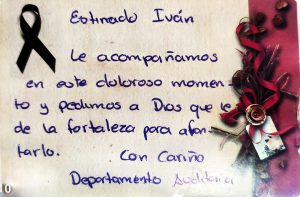 Estimado Iván
Le acompañamos
en este doloroso momen-
to y pedimos a Dios que le
de la fortaleza para afon-
tarlo.
Con Cariño
Departamento Auditoria
10